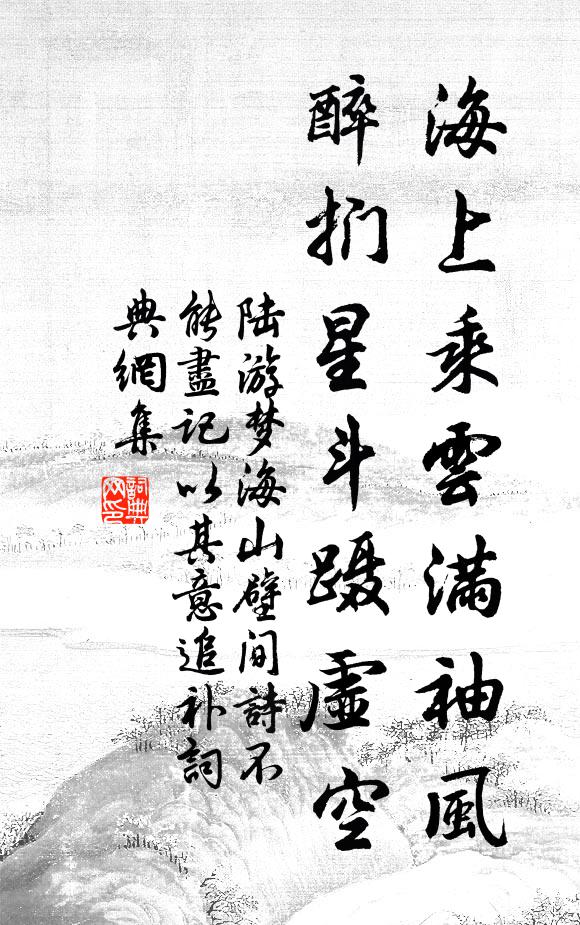 海上乘雲滿袖風
醉捫星斗蹑虛空
陆游梦海山壁间詩不
能盡记以其意追补詞
典網集
詞典
网印